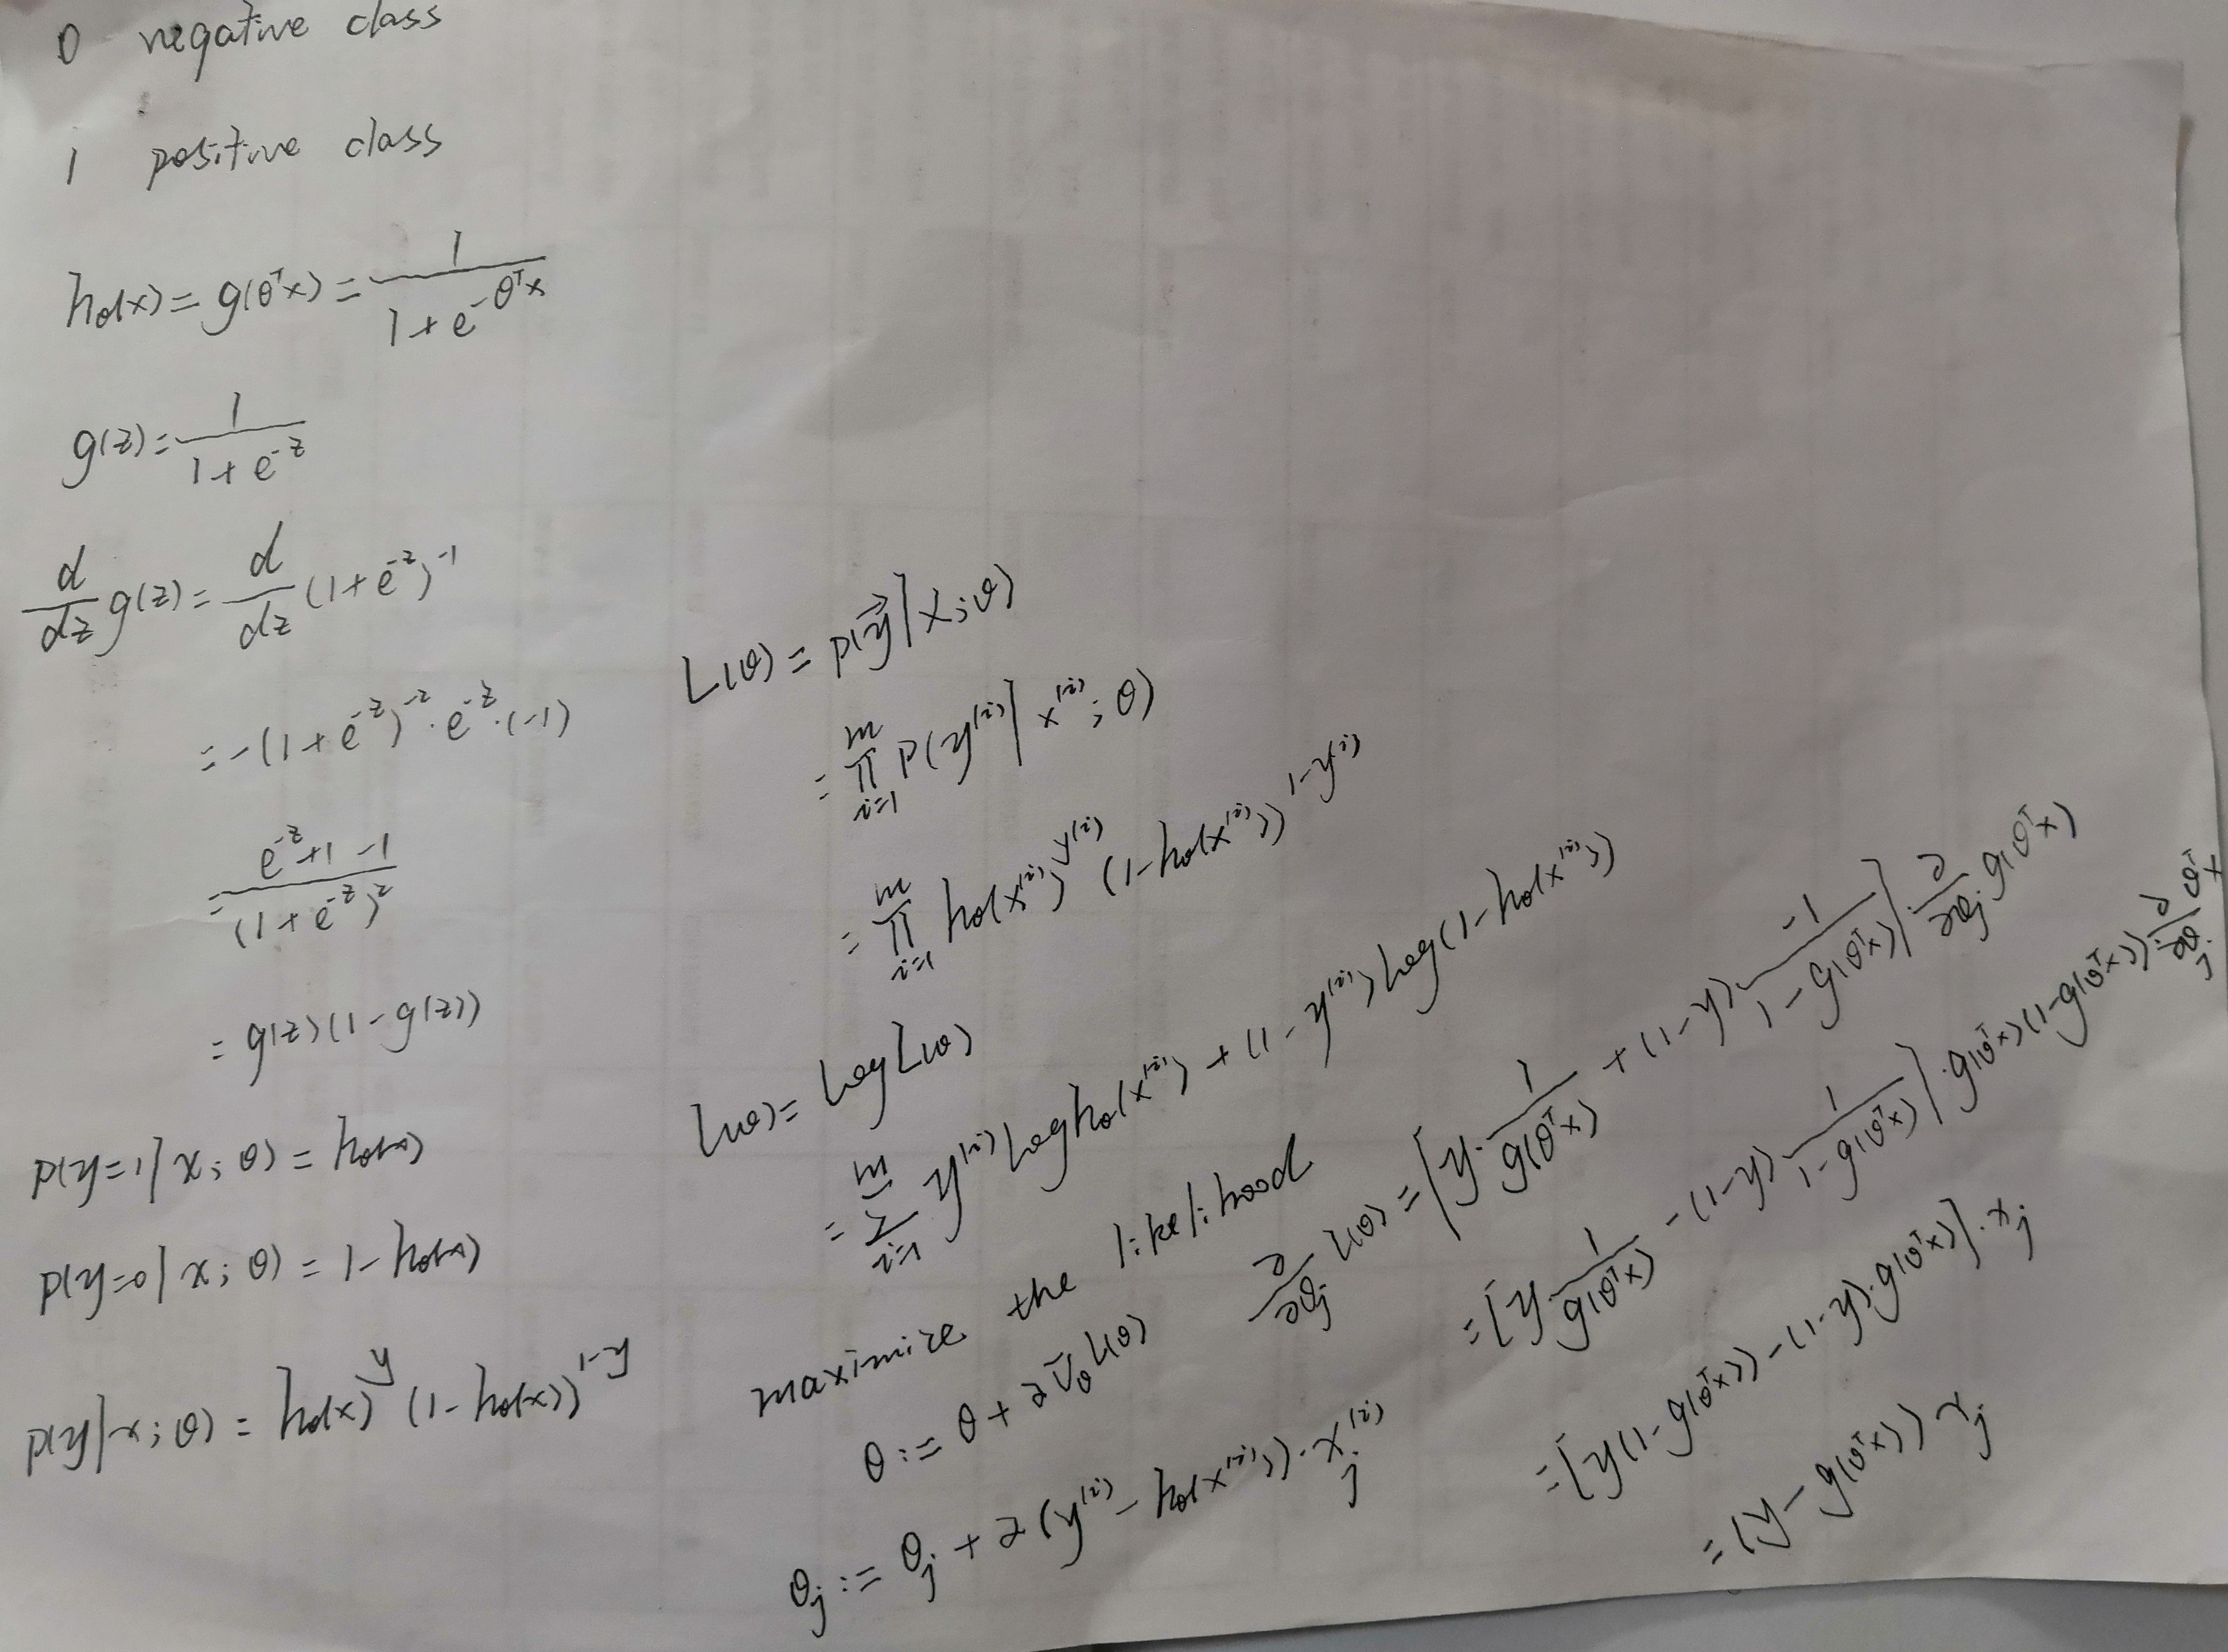 0 negative class
1 positive class
hθ(x) = g(θᵀx) = 1 / (1 + e^(-θᵀx))
g(z) = 1 / (1 + e^(-z))
d/dz g(z) = d/dz (1 + e^(-z))^(-1)
= -(1 + e^(-z))^(-2) · e^(-z) · (-1)
= (e^(-z) + 1 - 1) / (1 + e^(-z))^2
= g(z)(1 - g(z))
P(y=1 | x; θ) = hθ(x)
P(y=0 | x; θ) = 1 - hθ(x)
P(y | x; θ) = hθ(x)^y (1 - hθ(x))^(1-y)
L(θ) = P(y⃗ | X; θ)
= ∏_{i=1}^{m} P(y^(i) | x^(i); θ)
= ∏_{i=1}^{m} hθ(x^(i))^(y^(i)) (1 - hθ(x^(i)))^(1-y^(i))
l(θ) = log L(θ)
= Σ_{i=1}^{m} y^(i) log hθ(x^(i)) + (1 - y^(i)) log(1 - hθ(x^(i)))
maximize the likelihood
θ := θ + α ∇_θ l(θ)
θ_j := θ_j + α (y^(i) - hθ(x^(i))) · x_j^(i)
∂/∂θ_j l(θ) = [y · 1/g(θᵀx) + (1-y) · -1/(1 - g(θᵀx))] · ∂/∂θ_j g(θᵀx)
= [y · 1/g(θᵀx) - (1-y) · 1/(1 - g(θᵀx))] · g(θᵀx)(1 - g(θᵀx)) ∂/∂θ_j θᵀx
= [y(1 - g(θᵀx)) - (1-y) · g(θᵀx)] · x_j
= (y - g(θᵀx)) x_j